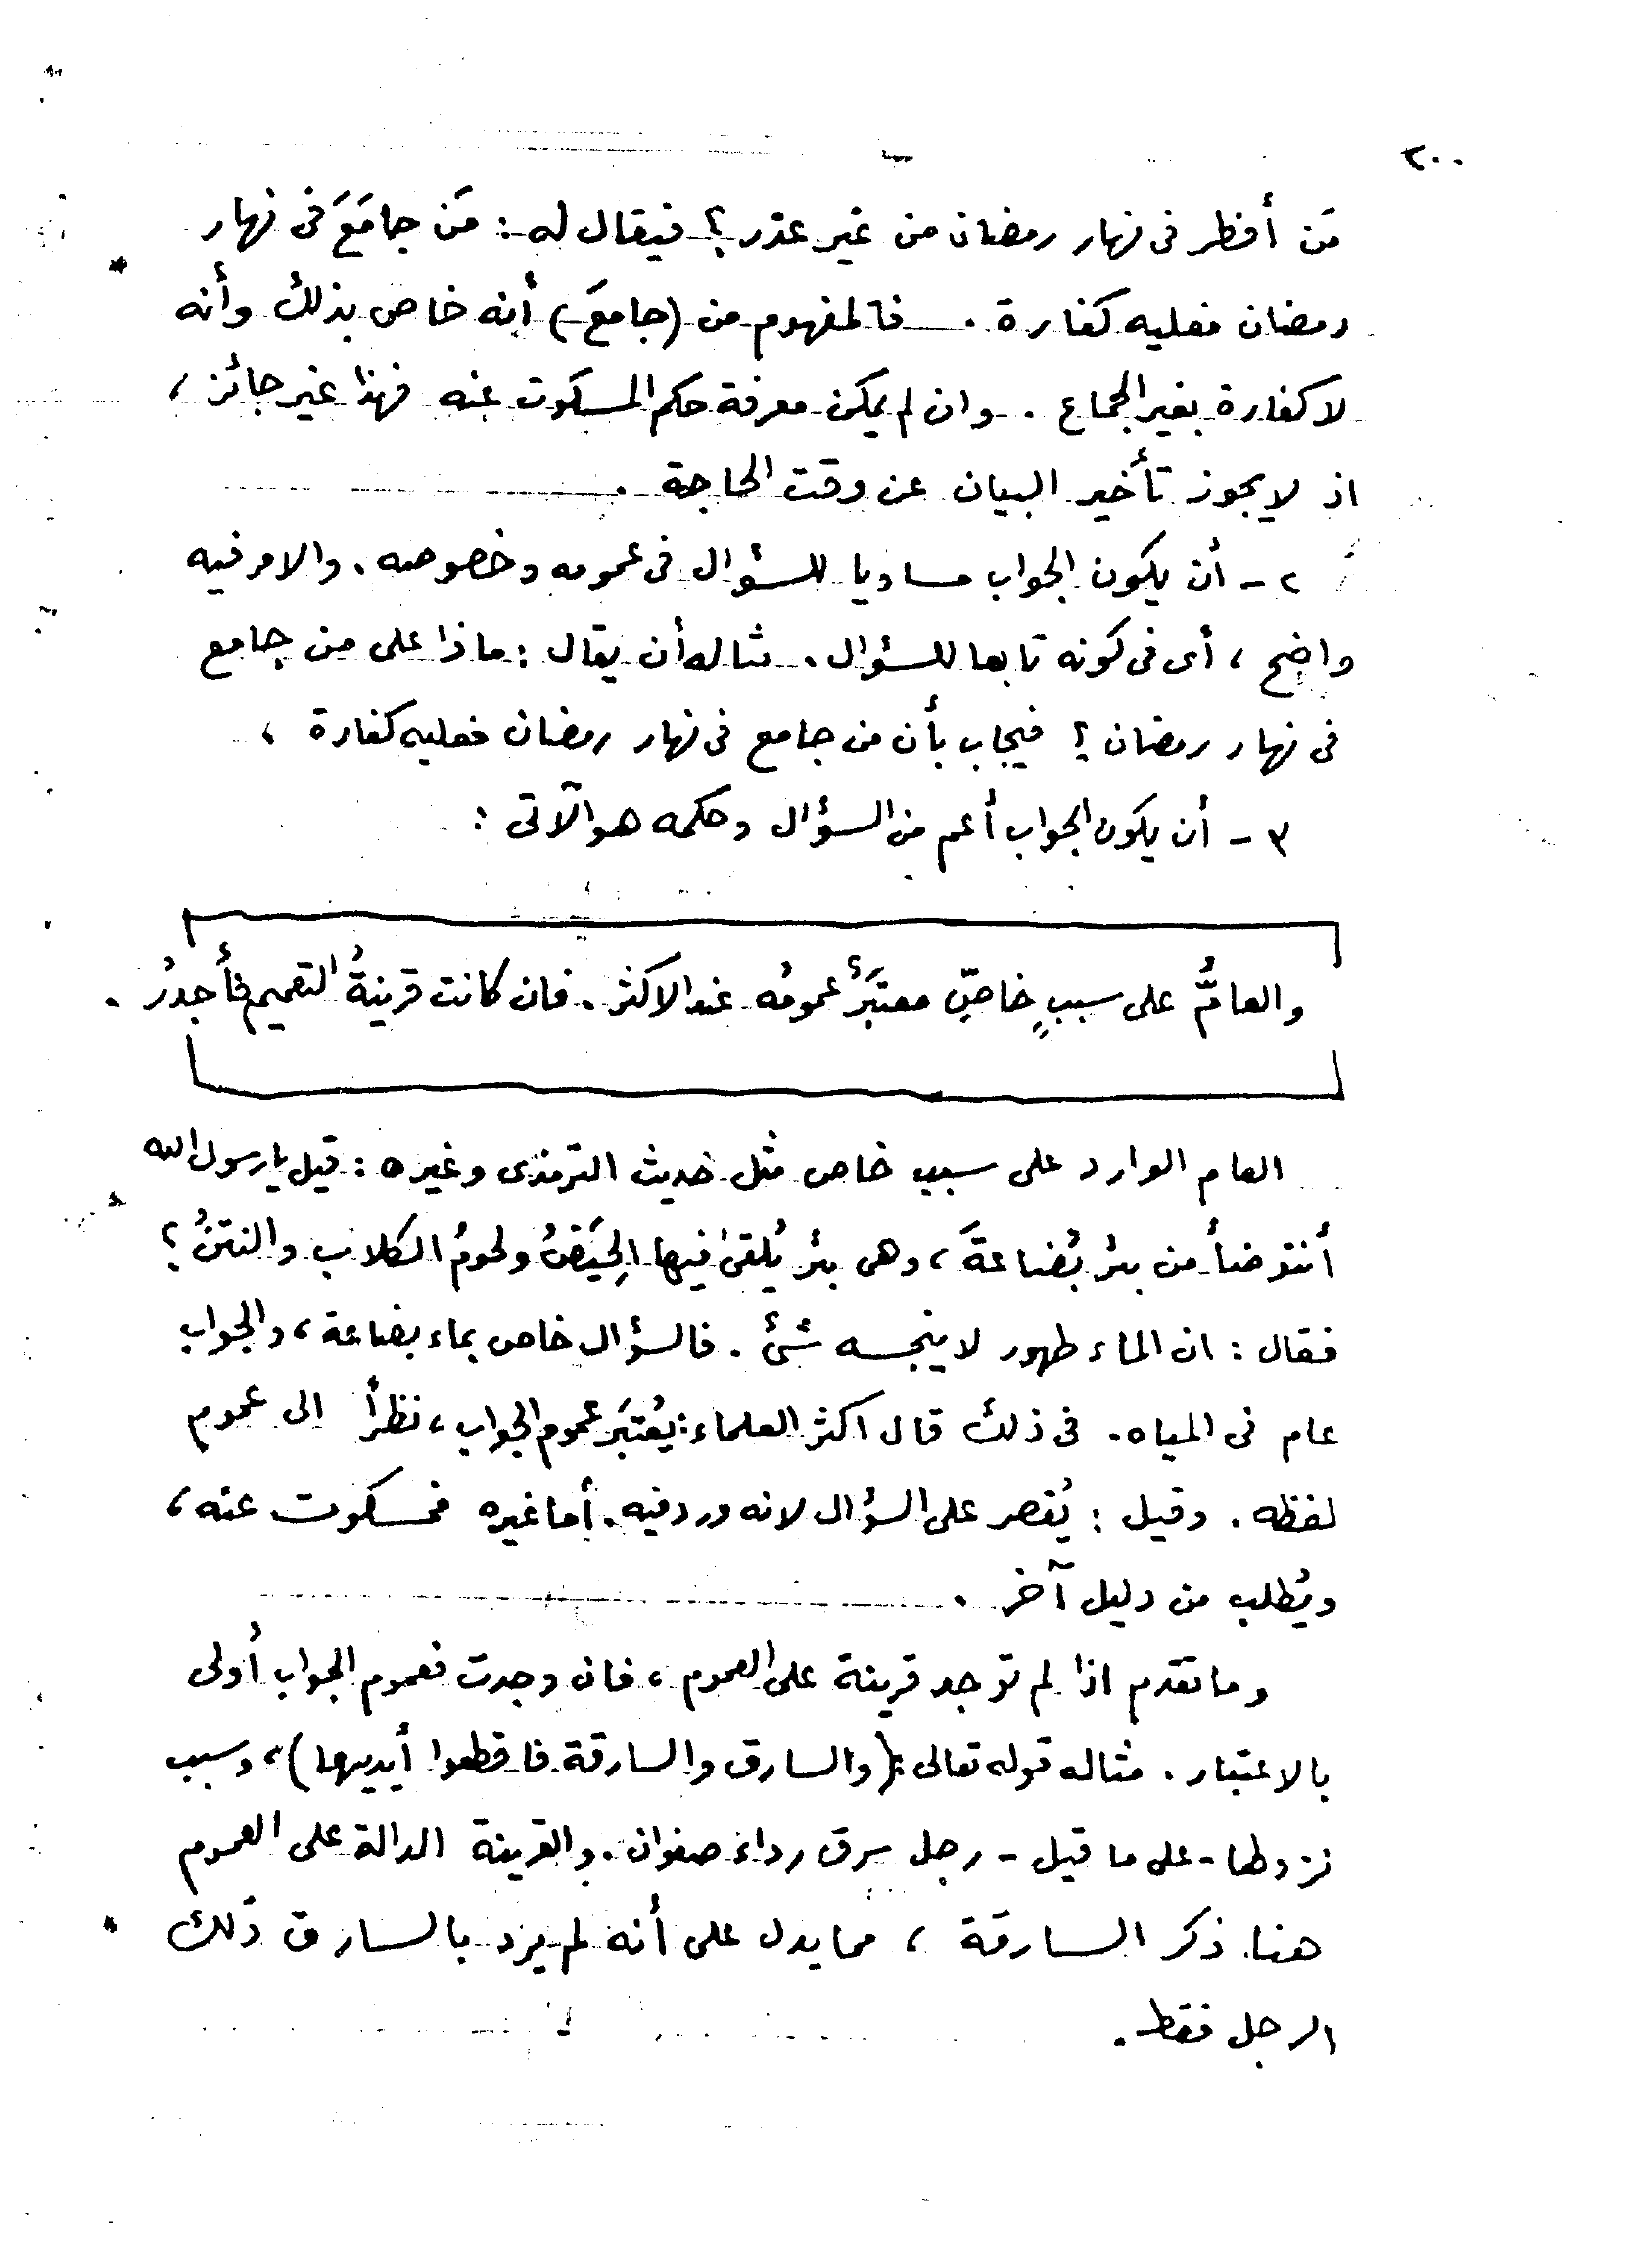 ٢٠٠
مَن أفطر فى نهار رمضان من غير عذر ؟ فيقال له : مَن جامَعَ فى نهار
رمضان فعليه كفارة . فالمفهوم من (جامعَ) أنه خاص بذلك وأنه
لا كفارة بغير الجماع . وان لم يمكن معرفة حكم المسكوت عنه فهذا غير جائز ،
اذ لا يجوز تأخير البيان عن وقت الحاجة .
٢ - أن يكون الجواب مساويا للسؤال فى عمومه وخصوصه . والامر فيه
واضح ، أى فى كونه تابعا للسؤال . مثاله أن يقال : ماذا على من جامع
فى نهار رمضان ؟ فيجاب بأن من جامع فى نهار رمضان فعليه كفارة ،
٣ - أن يكون الجواب أعم من السؤال وحكمه هو الآتى :
والعامُّ على سببٍ خاصٍّ معتبَرٌ عمومُه عند الاكثر . فان كانت قرينةُ التعميم فأجدرُ .
العام الوارد على سبب خاص مثل حديث الترمذى وغيره : قيل يا رسول الله
أنتوضأ من بئر بُضاعةَ ، وهى بئر يُلقىٰ فيها الحِيَضُ ولحومُ الكلاب والنتنُ ؟
فقال : ان الماء طهور لا ينجسه شئ . فالسؤال خاص بماء بضاعة ، والجواب
عام فى المياه . فى ذلك قال اكثر العلماء : يُعتبَر عموم الجواب ، نظراً الى عموم
لفظه . وقيل : يُقصر على السؤال لانه ورد فيه . أما غيره فمسكوت عنه ،
ويُطلب من دليل آخر .
وما تقدم اذا لم توجد قرينة على العموم ، فان وجدت فعموم الجواب أولى
بالاعتبار . مثاله قوله تعالى : (والسارق والسارقة فاقطعوا أيديهما) ، وسبب
نزولها - على ما قيل - رجل سرق رداء صفوان . والقرينة الدالة على العموم
هنا ذكر السارقة ، مما يدل على أنه لم يرد بالسارق ذلك
الرجل فقط .